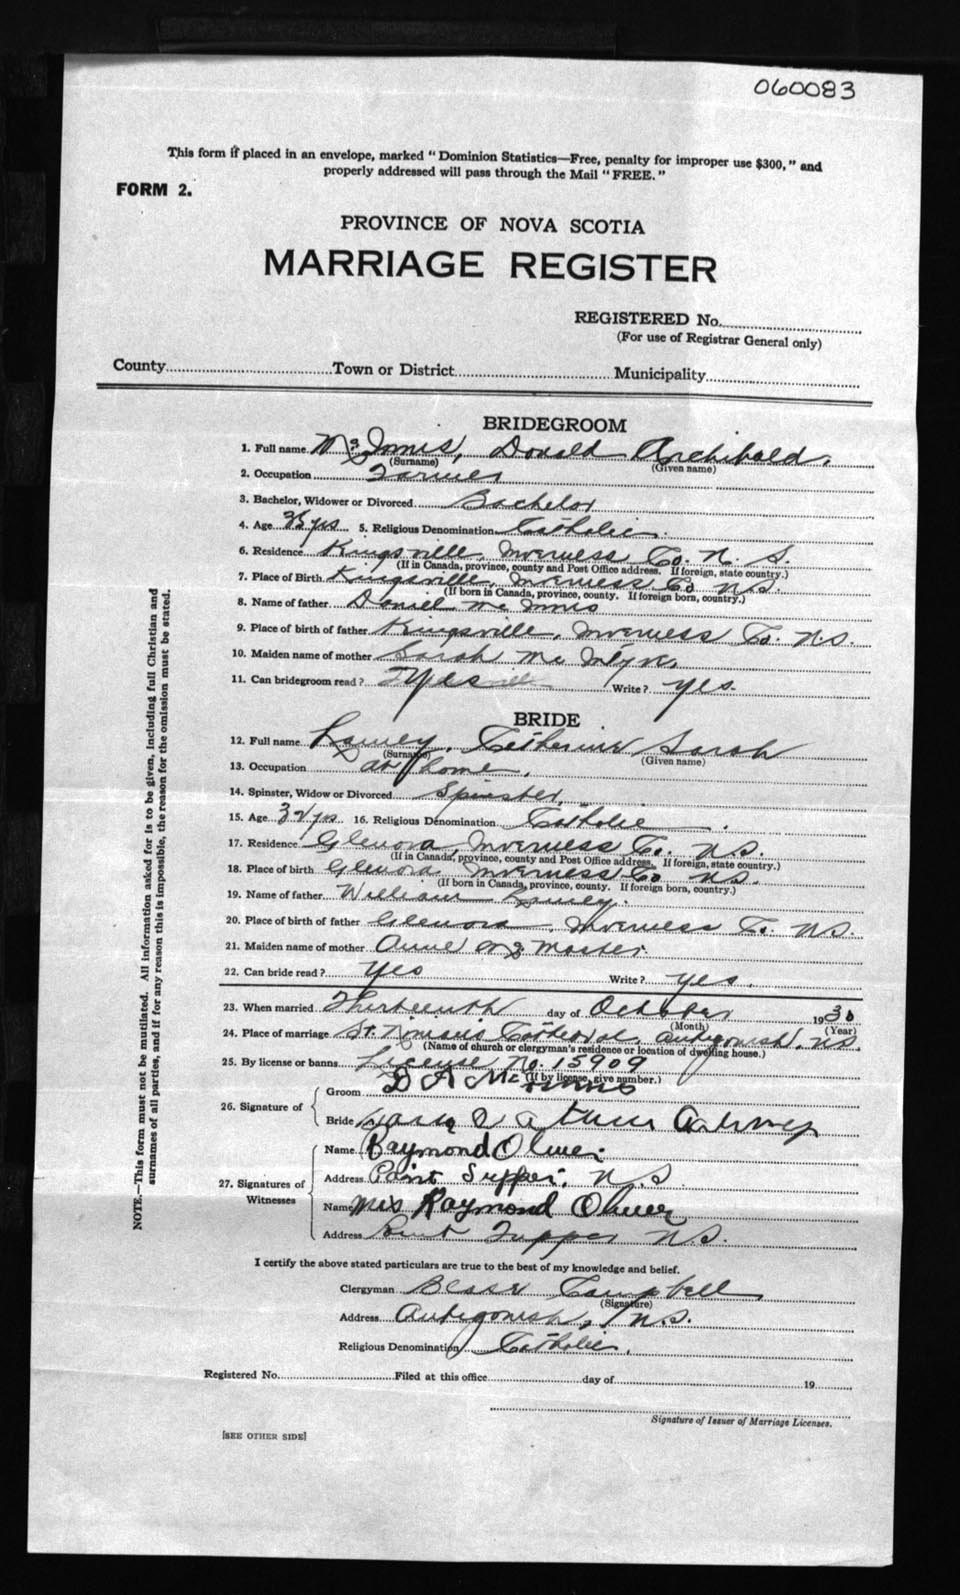 060083
This form if placed in an envelope, marked "Dominion Statistics—Free, penalty for improper use $300," and
properly addressed will pass through the Mail "FREE."
FORM 2.
PROVINCE OF NOVA SCOTIA
MARRIAGE REGISTER
REGISTERED No.
(For use of Registrar General only)
County Town or District Municipality
BRIDEGROOM
1. Full name McInnis, Donald Archibald.
(Surname) (Given name)
2. Occupation Farmer
3. Bachelor, Widower or Divorced Bachelor
4. Age yrs 5. Religious Denomination Catholic.
6. Residence Kingsville, Inverness Co. N. S.
(If in Canada, province, county and Post Office address. If foreign, state country.)
7. Place of Birth Kingsville, Inverness Co N.S.
(If born in Canada, province, county. If foreign born, country.)
8. Name of father Daniel McInnis
9. Place of birth of father Kingsville, Inverness Co. N.S.
10. Maiden name of mother Sarah Mc
11. Can bridegroom read? Yes Write? yes.
BRIDE
12. Full name Catherine Sarah
(Surname) (Given name)
13. Occupation at home.
14. Spinster, Widow or Divorced Spinster.
15. Age yrs 16. Religious Denomination Catholic.
17. Residence Glenora, Inverness Co. N.S.
(If in Canada, province, county and Post Office address. If foreign, state country.)
18. Place of birth Glenora, Inverness Co N.S.
(If born in Canada, province, county. If foreign born, country.)
19. Name of father William
20. Place of birth of father Glenora, Inverness Co. N.S.
21. Maiden name of mother Anne McMaster.
22. Can bride read? Yes Write? yes.
23. When married Thirteenth day of October 1930
(Month) (Year)
24. Place of marriage St. Ninian's Cathedral, Antigonish, N.S.
(Name of church or clergyman's residence or location of dwelling house.)
25. By license or banns License No. 15909
(If by license, give number.)
26. Signature of
Groom D A McInnis
Bride
27. Signatures of Witnesses
Name Raymond Oliver
Address Point Tupper, N.S
Name Mrs Raymond Oliver
Address Point Tupper N.S.
I certify the above stated particulars are true to the best of my knowledge and belief.
Clergyman Campbell
(Signature)
Address Antigonish, N.S.
Religious Denomination Catholic.
Registered No. Filed at this office day of 19
Signature of Issuer of Marriage Licenses.
[SEE OTHER SIDE]
NOTE.—This form must not be mutilated. All information asked for is to be given, including full Christian and
surnames of all parties, and if for any reason this is impossible, the reason for the omission must be stated.